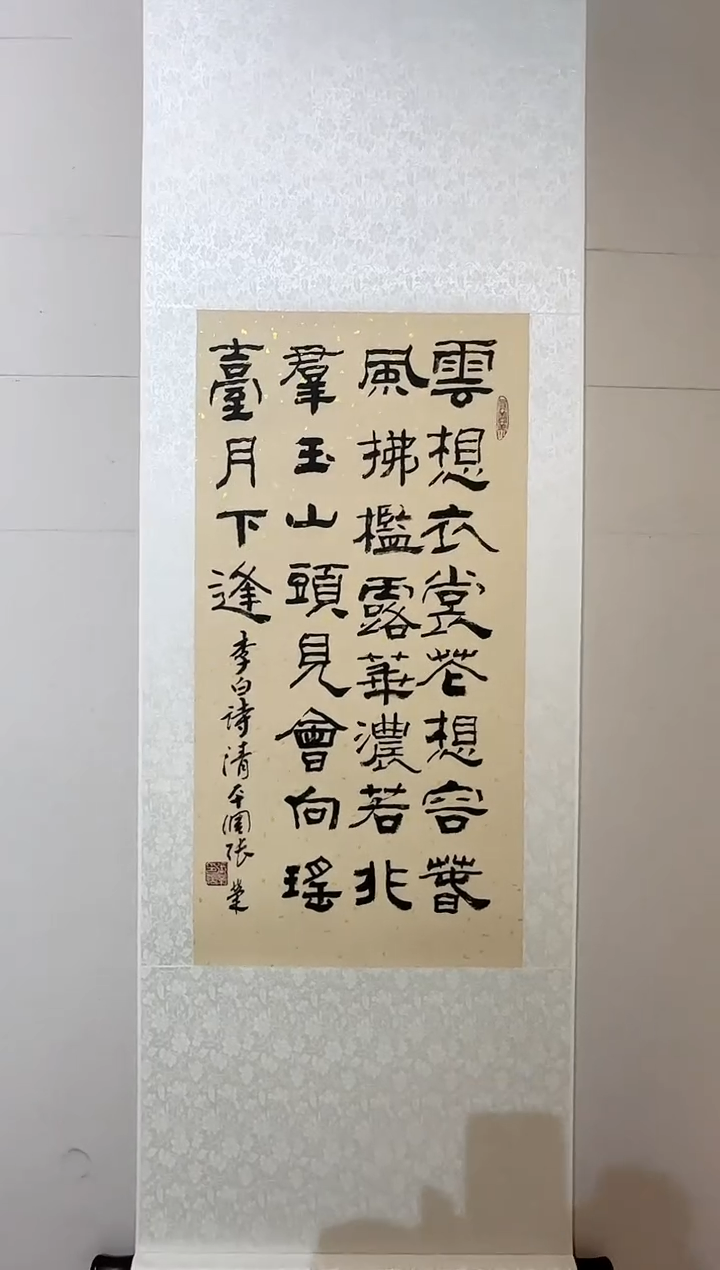 雲想衣裳花想容春
風拂檻露華濃若非
羣玉山頭見會向瑤
臺月下逢
李白詩清平調張